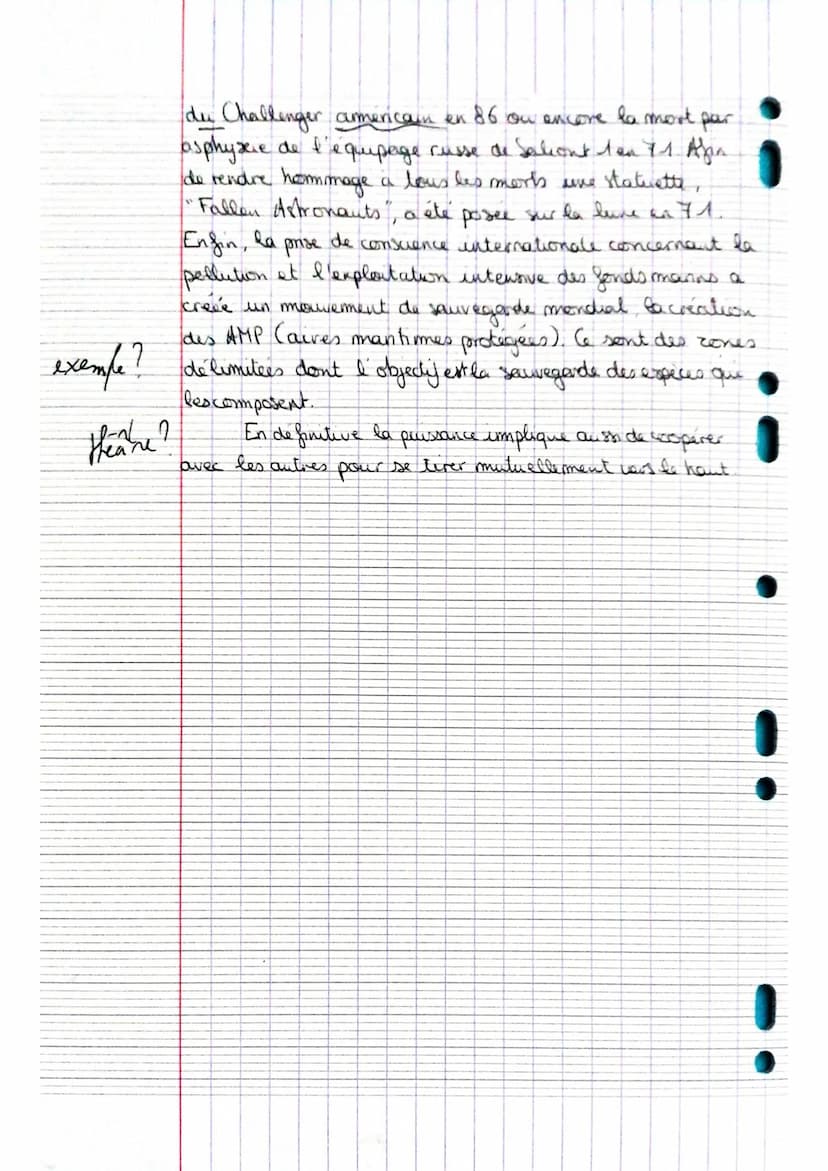 du Challenger américain en 86 ou encore la mort par
asphyxie de l'équipage russe de Saliout 1 en 71. Afin
de rendre hommage à tous les morts une statuette,
"Fallen Astronauts", a été posée sur la lune en 71.
Enfin, la prise de conscience internationale concernant la
pollution et l'exploitation intensive des fonds marins a
créée un mouvement de sauvegarde mondial, la création
des AMP (aires maritimes protégées). Ce sont des zones
exemple? délimitées dont l'objectif est la sauvegarde des espèces qui
les composent.
En définitive la puissance implique aussi de coopérer
avec les autres pour se tirer mutuellement vers le haut.